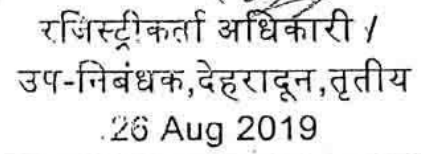 रजिस्ट्रीकर्ता अधिकारी /
उप-निबंधक,देहरादून,तृतीय
26 Aug 2019